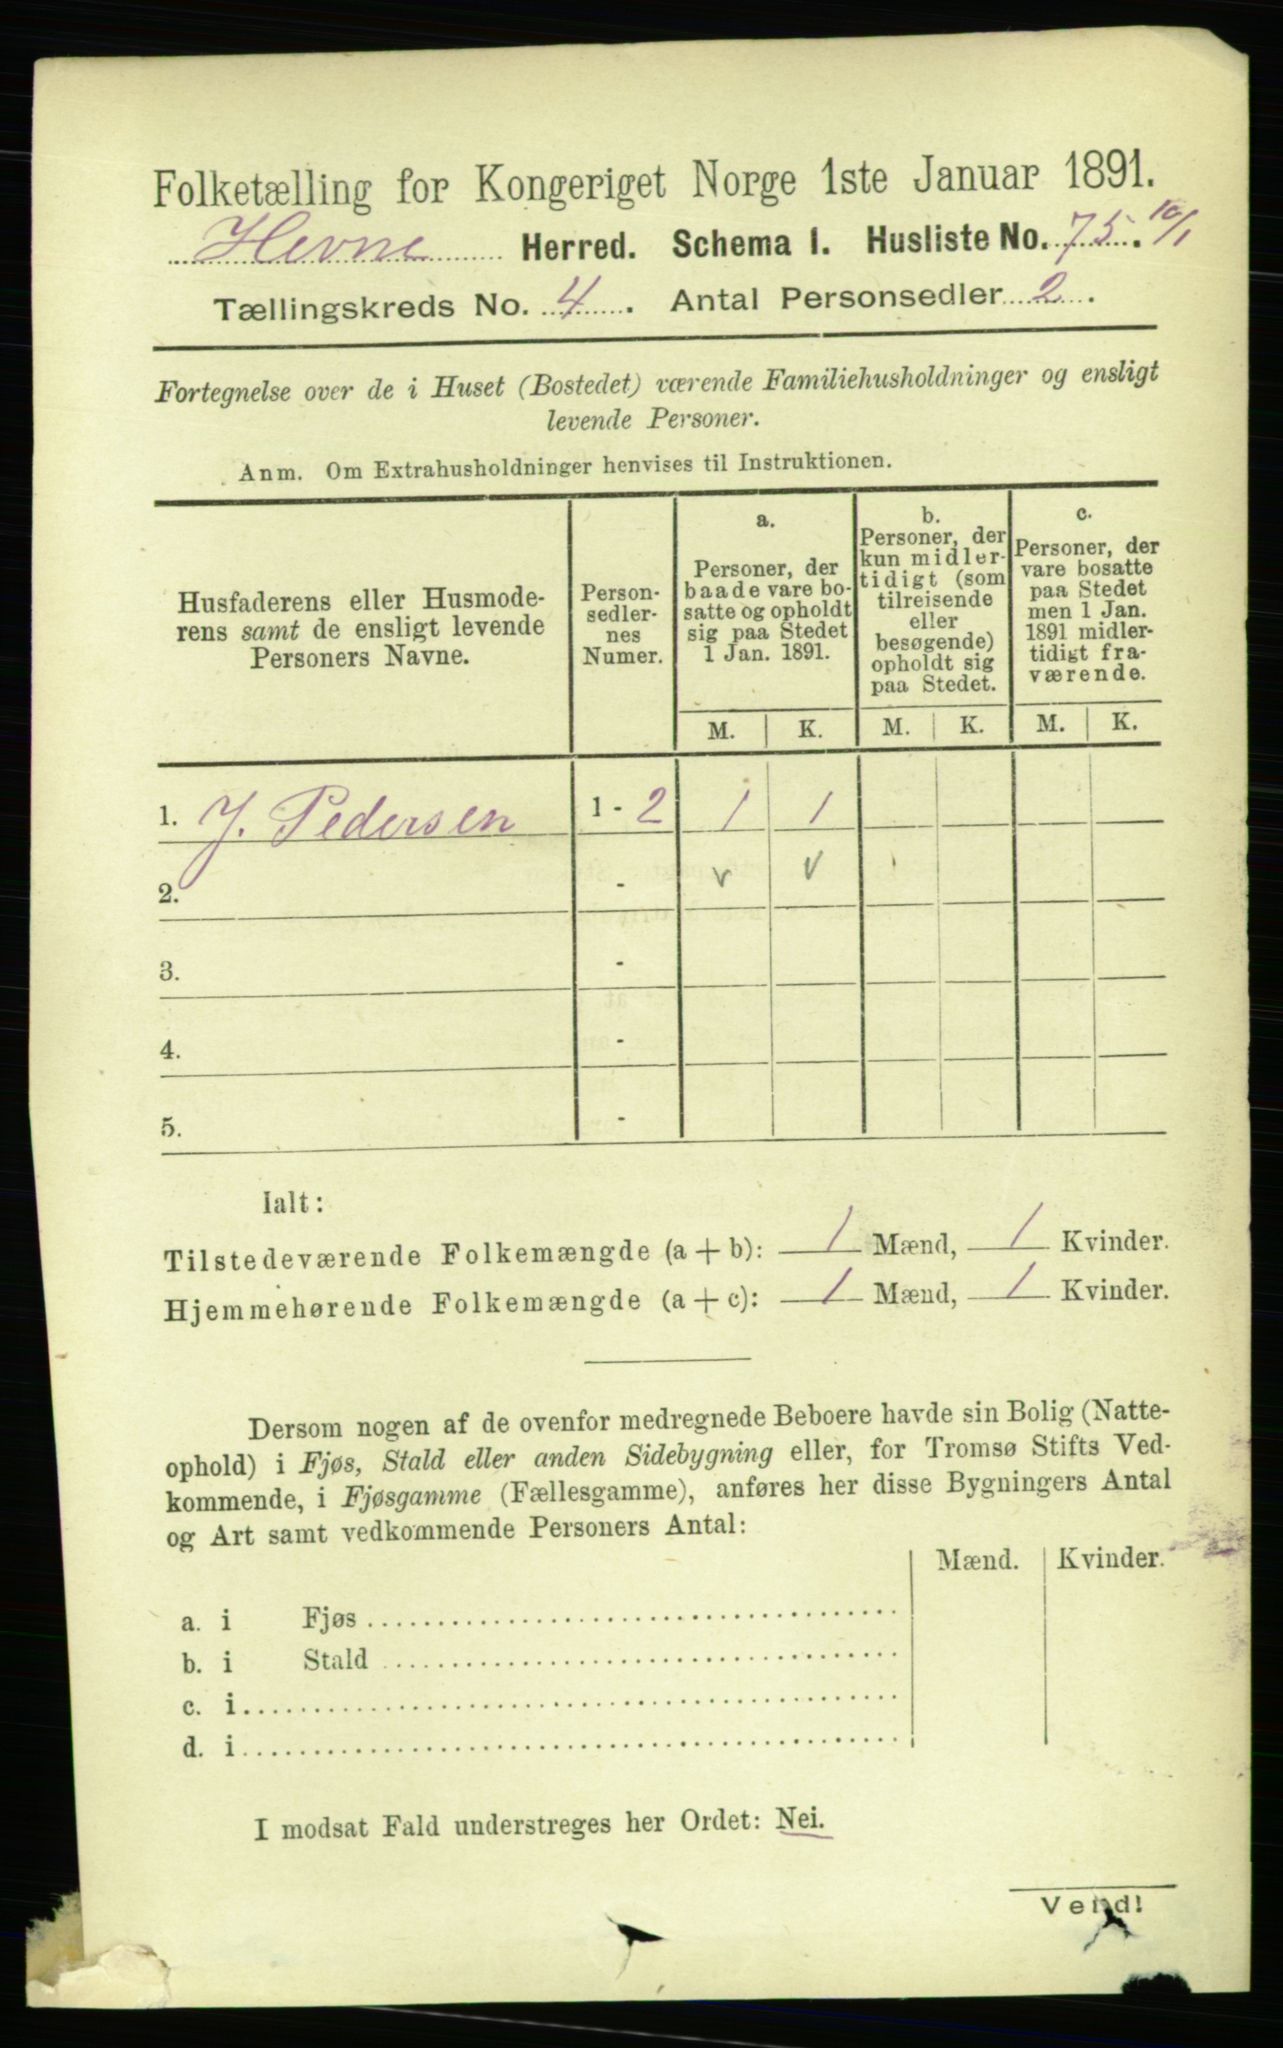 Folketælling for Kongeriget Norge 1ste Januar 1891.
Hevne Herred. Schema 1. Husliste No. 75. 10/1
Tællingskreds No. 4. Antal Personsedler 2.
Fortegnelse over de i Huset (Bostedet) værende Familiehusholdninger og ensligt
levende Personer.
Anm. Om Extrahusholdninger henvises til Instruktionen.
Husfaderens eller Husmode-
rens samt de ensligt levende
Personers Navne.
Person-
sedler-
nes
Numer.
a.
Personer, der
baade vare bo-
satte og opholdt
sig paa Stedet
1 Jan. 1891.
b.
Personer, der
kun midler-
tidigt (som
tilreisende
eller
besøgende)
opholdt sig
paa Stedet.
c.
Personer, der
vare bosatte
paa Stedet
men 1 Jan.
1891 midler-
tidigt fra-
værende.
M. K. M. K. M. K.
1. J. Pedersen 1 - 2 1 1
2. - v v
3. -
4. -
5. -
Ialt:
Tilstedeværende Folkemængde (a + b): 1 Mænd, 1 Kvinder.
Hjemmehørende Folkemængde (a + c): 1 Mænd, 1 Kvinder.
Dersom nogen af de ovenfor medregnede Beboere havde sin Bolig (Natte-
ophold) i Fjøs, Stald eller anden Sidebygning eller, for Tromsø Stifts Ved-
kommende, i Fjøsgamme (Fællesgamme), anføres her disse Bygningers Antal
og Art samt vedkommende Personers Antal:
Mænd. Kvinder.
a. i Fjøs
b. i Stald
c. i
d. i
I modsat Fald understreges her Ordet: Nei.
Vend!